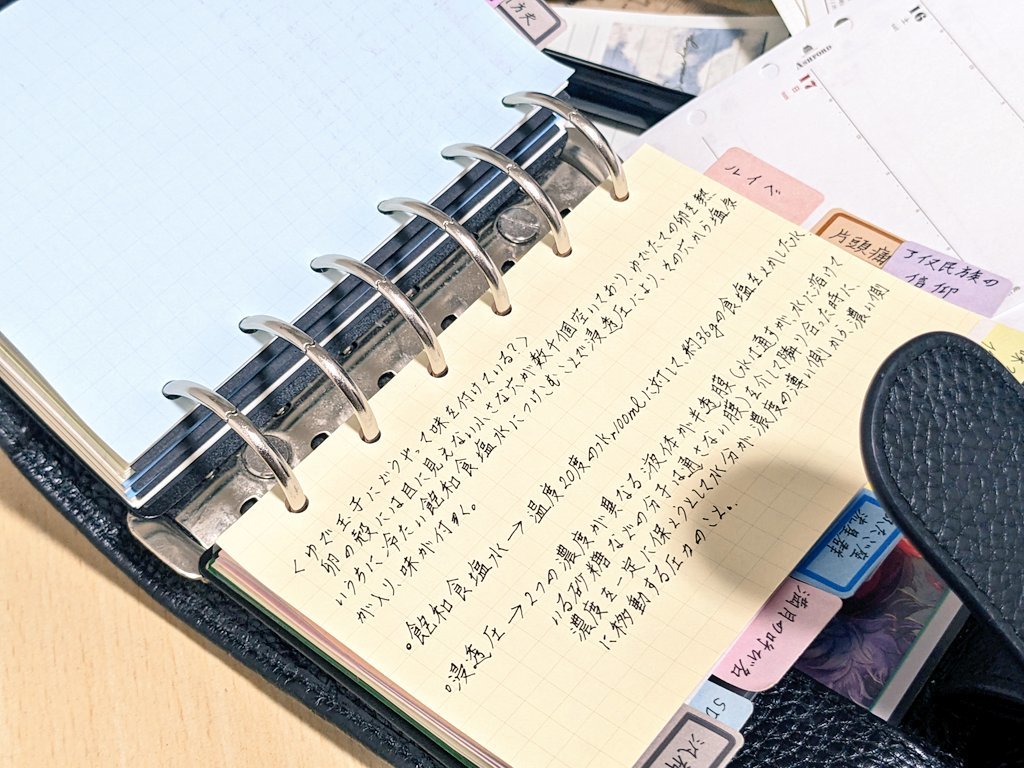 <ゆで玉子にどうやって味を付けている?>
卵の殻には目に見えない小さな穴が数千個空いており、ゆでたての卵を熱
いうちに、冷たい飽和食塩水につけこむことで浸透圧により、その穴から塩気
が入り、味が付く。
。飽和食塩水→温度20度の水100mlに対して約36gの食塩をとかした水
。浸透圧→2つの濃度が異なる液体が半透膜(水は通すが、水に溶けて
いる砂糖などの分子は通さない膜)を介して隣り合った時に、
濃度を一定に保とうとして水分が濃度の薄い側から、濃い側
に移動する圧力のこと。
ルイベ
片頭痛
アイヌ民族の
信仰
満月の呼び名
Ashford
16
17